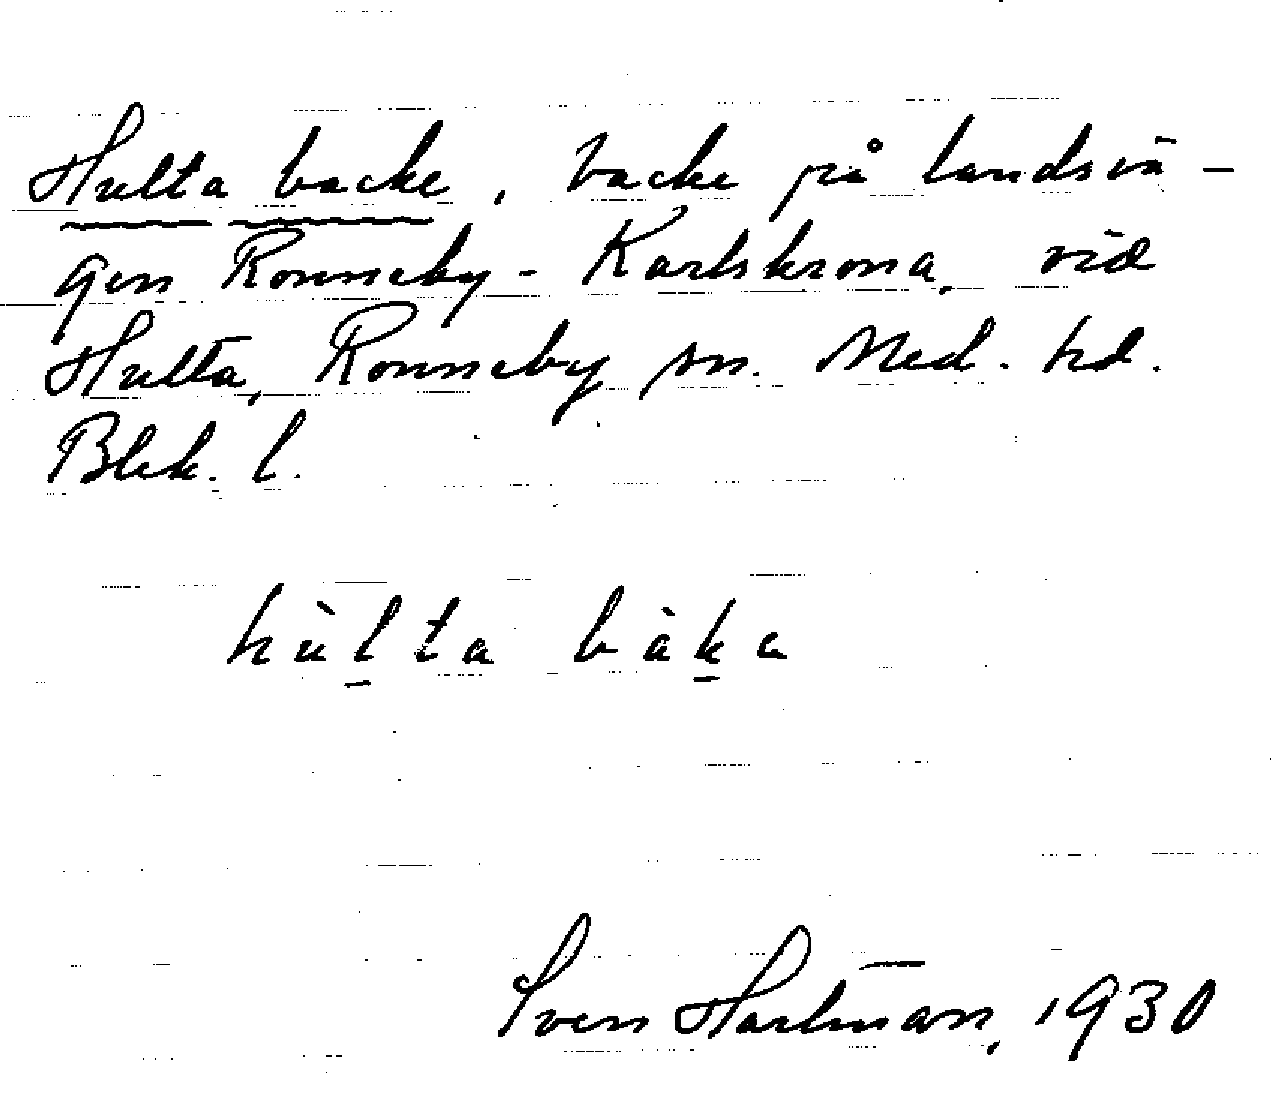 Hulta backe, backe på landsvä-
gen Ronneby - Karlskrona, vid
Hulta, Ronneby sn. Med. hd.
Blek. l.
hùl̠ta bàk̠a
Sven Hartman, 1930